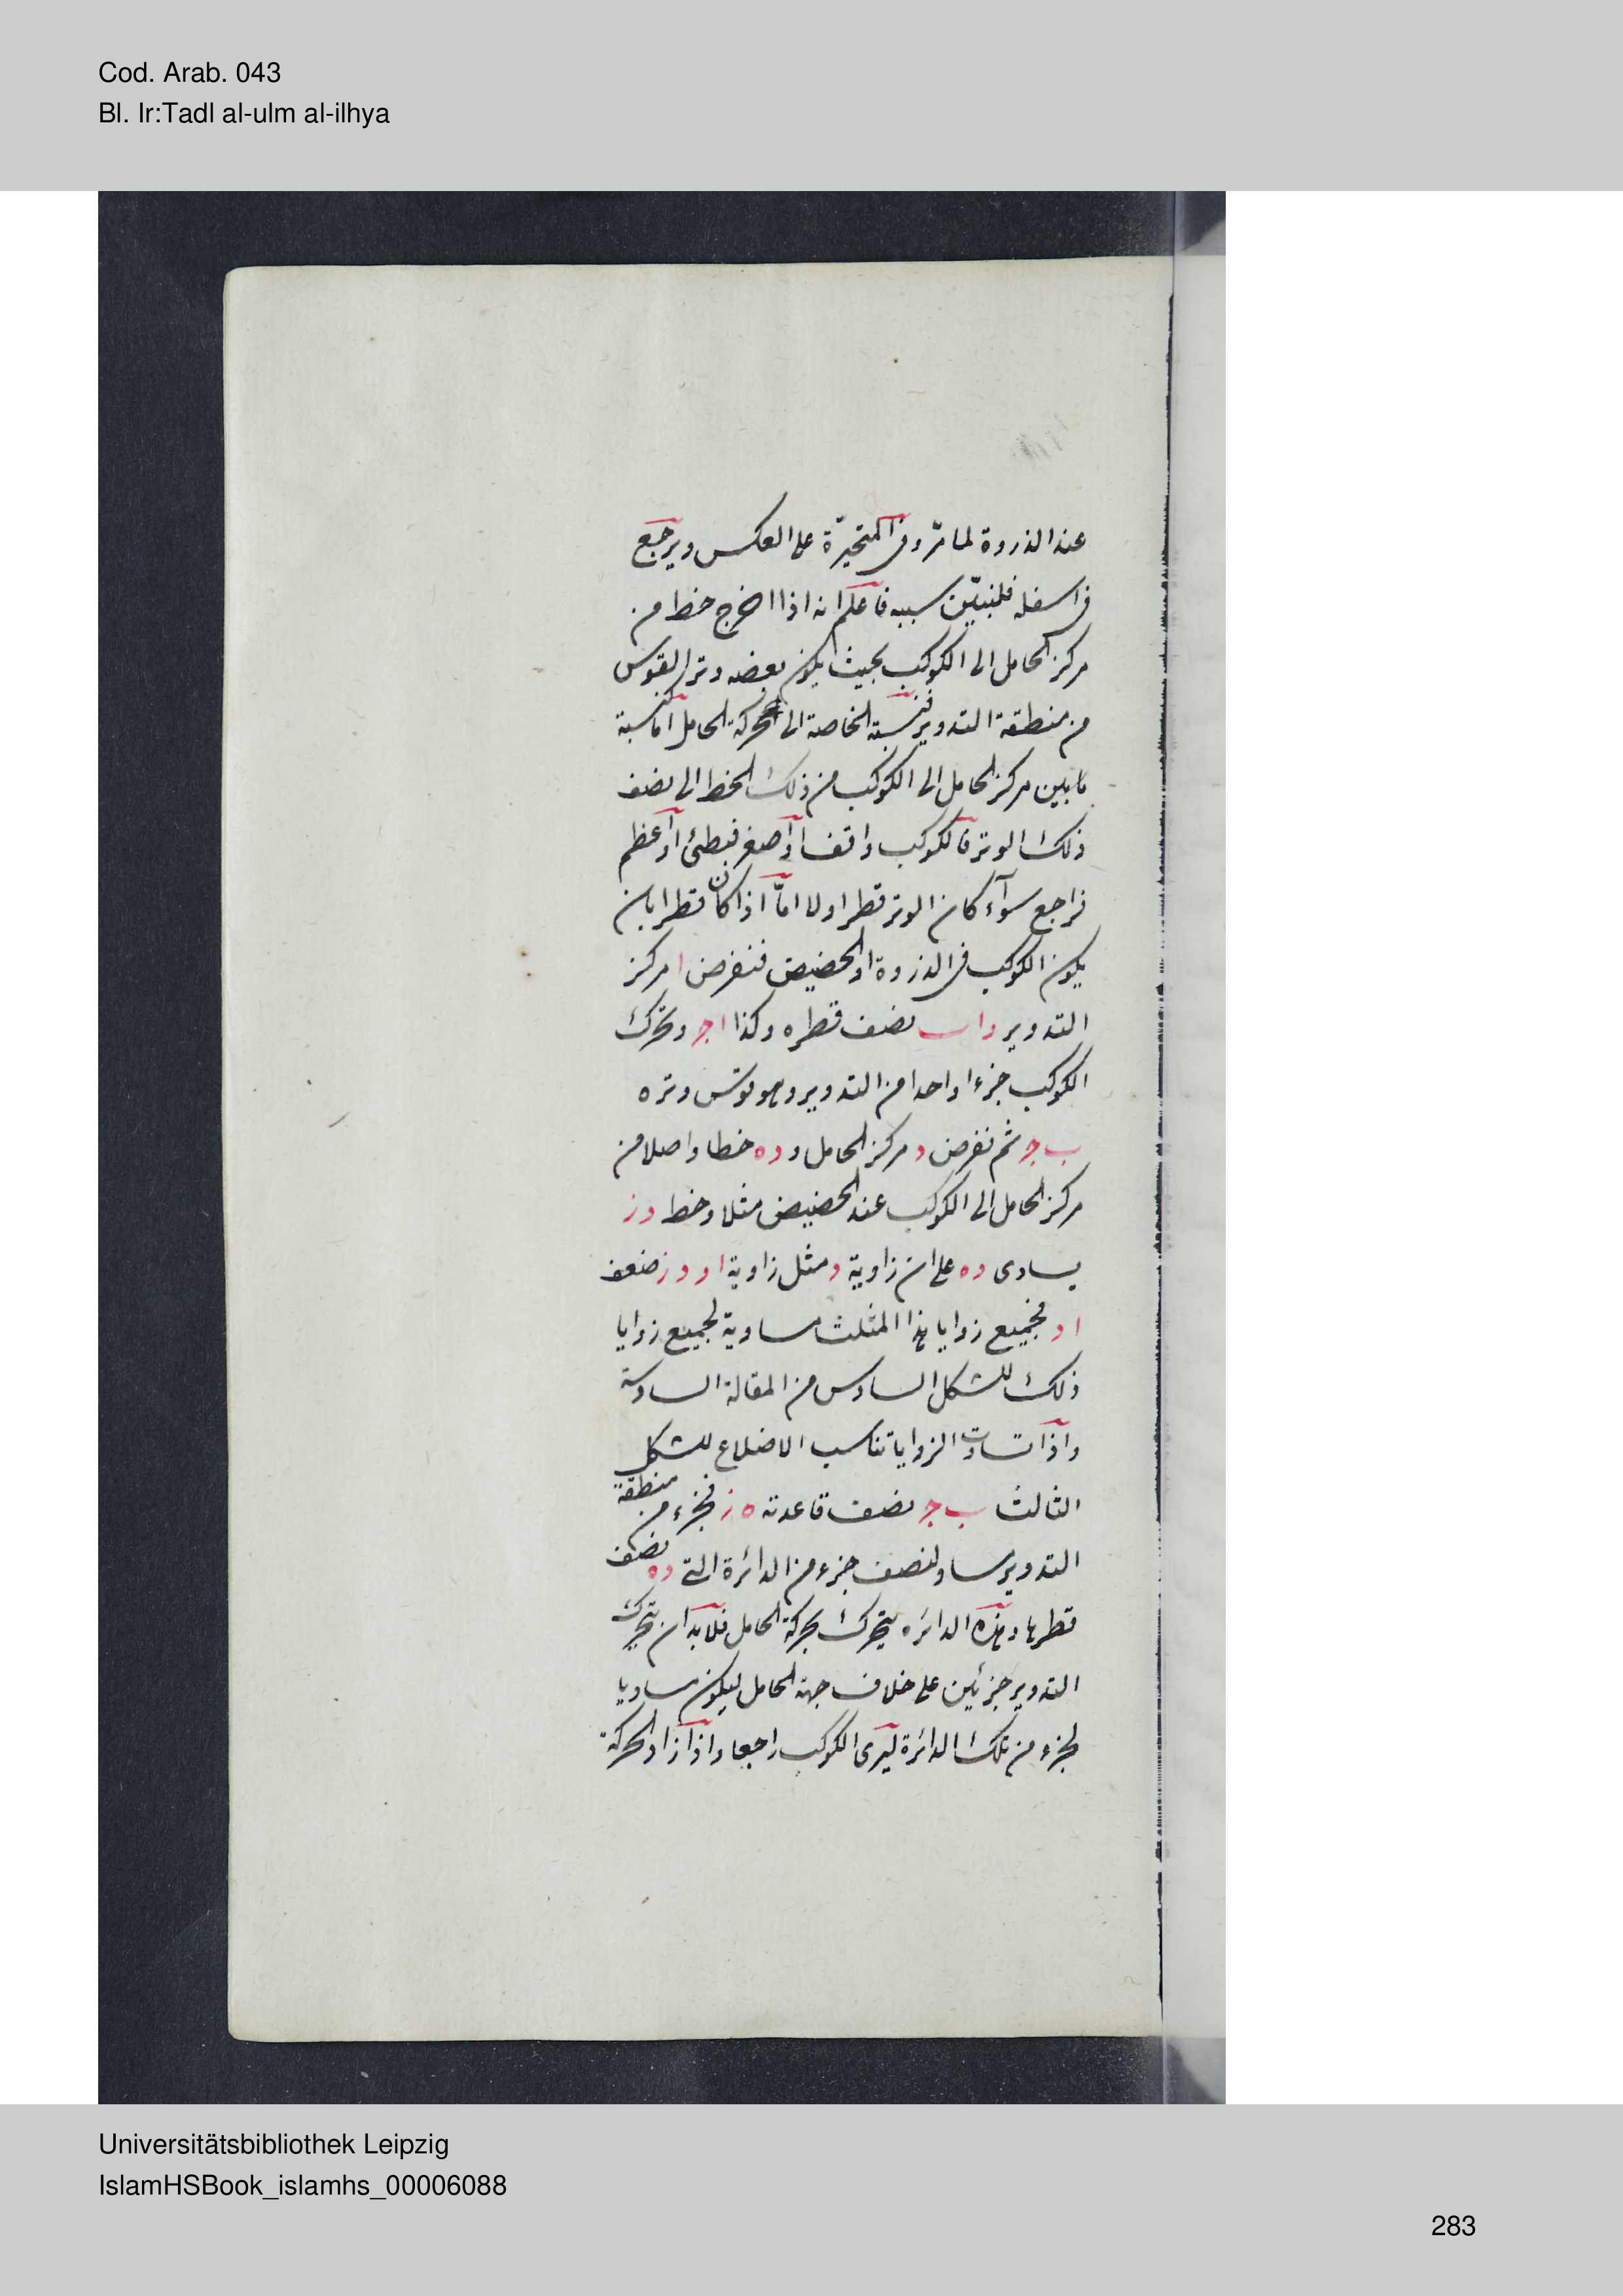 Cod. Arab. 043
Bl. Ir:Tadl al-ulm al-ilhya
عند الذروة لما مرّ وفى المتحيّرة على العكس ويرجع
فى اسفله فلنبيّن سببه فاعلم انه اذا اخرج خط من
مركز الحامل الى الكوكب بحيث يكون بعضه وتر القوس
من منطقة التدوير فنسبة الخاصة الى حركة الحامل اما كنسبة
ما بين مركز الحامل الى الكوكب من ذلك الخط الى نصف
ذلك الوتر فالكوكب واقف او اصغر فبطئ او اعظم
فراجع سوآء كان الوتر قطرا اولا امّا اذا كان قطرا بان
يكون الكوكب فى الذروة او الحضيض فنفرض ا مركز
التدوير و اب نصف قطره وكذا اج وتحرك
الكوكب جزءا واحدا من التدوير وهو قوس وتره
ب ج ثم نفرض د مركز الحامل و ده خطا واصلا من
مركز الحامل الى الكوكب عند الحضيض مثلا وخط دز
يساوى ده على ان زاوية د مثل زاوية ا و دز ضعف
اد فجميع زوايا هذا المثلث مساوية لجميع زوايا
ذلك للشكل السادس من المقالة السادسة
واذا تساوت الزوايا تناسب الاضلاع للشكل
الثالث ب ج نصف قاعدته ه ز فجزء من منطقة
التدوير مساو لنصف جزء من الدائرة التى ده نصف
قطرها وهذه الدائره يتحرك بحركة الحامل فلا بد ان يتحرك
التدوير جزئين على خلاف جهة الحامل ليكون مساويا
لجزء من تلك الدائرة ليرى الكوكب راجعا واذا زاد الحركة
Universitätsbibliothek Leipzig
IslamHSBook_islamhs_00006088
283